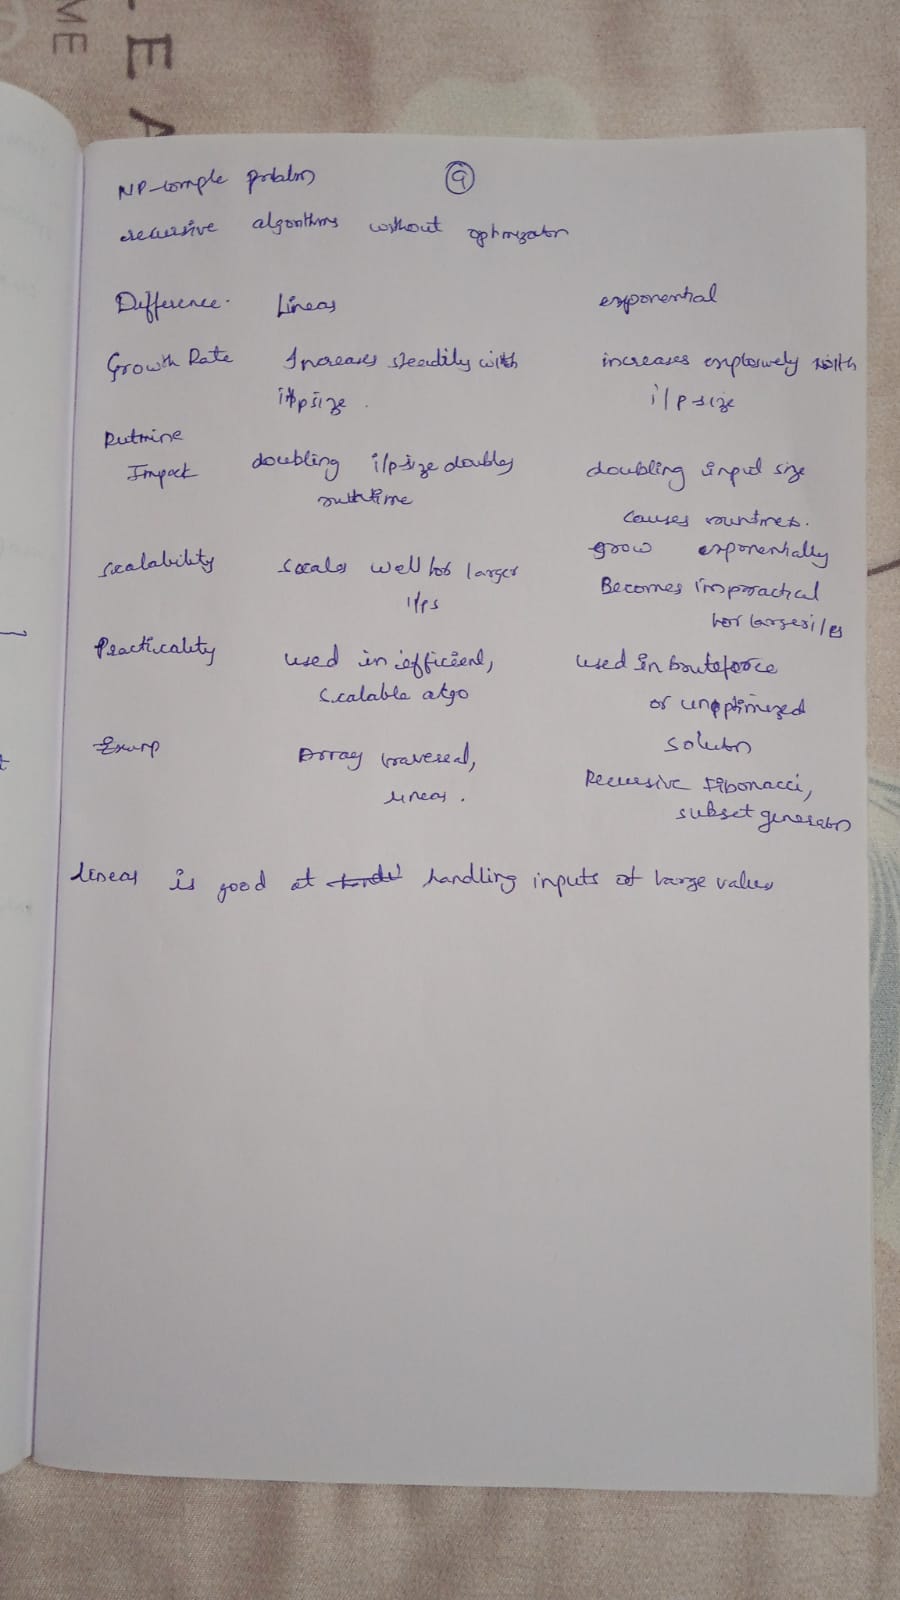 LEA
ME
9
NP-comple problm
recursive algorithms without optmizatn
Difference. Linear exponential
Growth Rate Increases steadily with increases explosively with
i/p size. i/p size
Rutmine
Impact doubling i/p size doubles doubling input size
runtime causes
grow exponentially
scalability scales well for larger Becomes impractical
i/ps for larger i/ps
Practicality used in efficient, used in bruteforce
scalable algo or unoptimized
solutn
Examp Array traversal, Recursive Fibonacci,
linear. subset generatn
Linear is good at handling inputs at large values